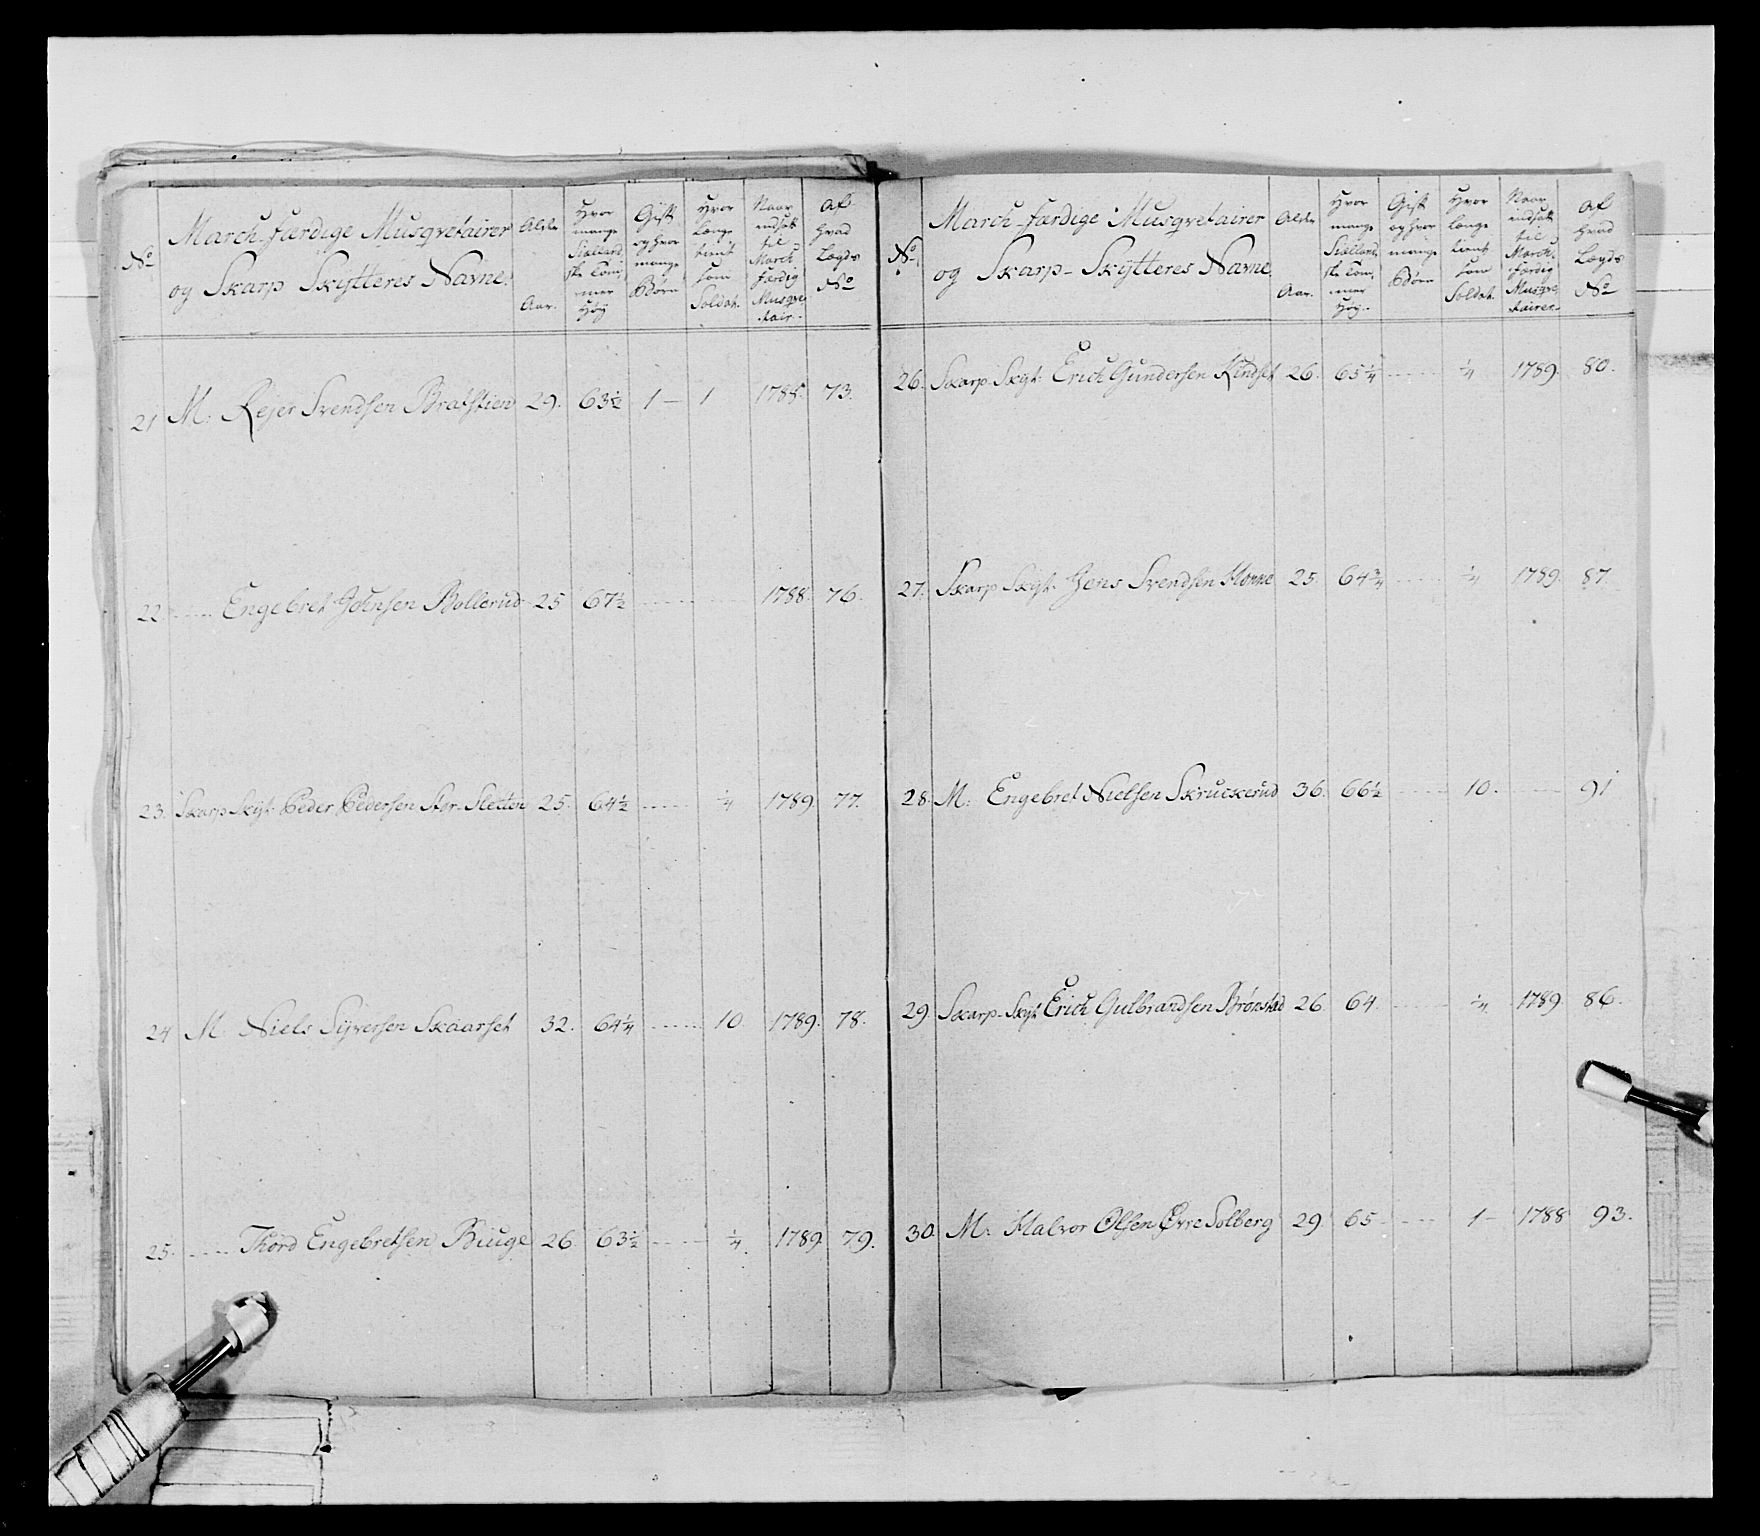 No
March-færdige Musqvetairer
og Skarp Skytteres Navne.
Alder
Aar.
Hvor
mange
Siælland
ske Tom,
mer
Høy
Gift
og hvor
mange
Børn
Hvor
længe
tient
som
Soldat.
Naar
indsatt
til
March
færdig
Musqve
tair.
Af
hvad
Lægds
No
21 M: Rejer Svendsen Bratstien 29. 63½ 1 — 1 1785. 73.
22 ...... Engebret Johnsen Bollerud 25 67½ ...... 1788. 76.
23. Skarp Skyt: Peder Pedersen Sletten 25. 64½ ...... ¼ 1789. 77.
24 M: Niels Syversen Skaarset 32. 64¼ ...... 10 1789. 78.
25. ...... Thord Engebretsen Biuge 26 63½ ...... ¼ 1789 79.
No
March-færdige Musqvetairer
og Skarp-Skytteres Navne.
Alder
Aar.
Hvor
mange
Siælland,
ske Tom,
mer
Høy.
Gift
og hvor
mange
Børn
Hvor
længe
tient
som
Soldat.
Naar
indsatt
til
March.
færdig
Musqve
tairer
Af
hvad
Lægds
No
26. Skarp Skyt: Erich Gundersen Rindset 26. 65¼ ...... ¼ 1789. 80.
27. Skarp Skyt: Jens Svendsen Honne 25. 64¾ ...... ¼ 1789. 87.
28. M: Engebret Nielsen Skruckerud 36. 66½ ...... 10. ...... 91
29. Skarp-Skyt Erich Gulbrandsen Brønstad 26 64. ...... ¼ 1789 86.
30. M: Halvor Olsen Øvre Solberg 29 65 ...... 1 — 1788 93.